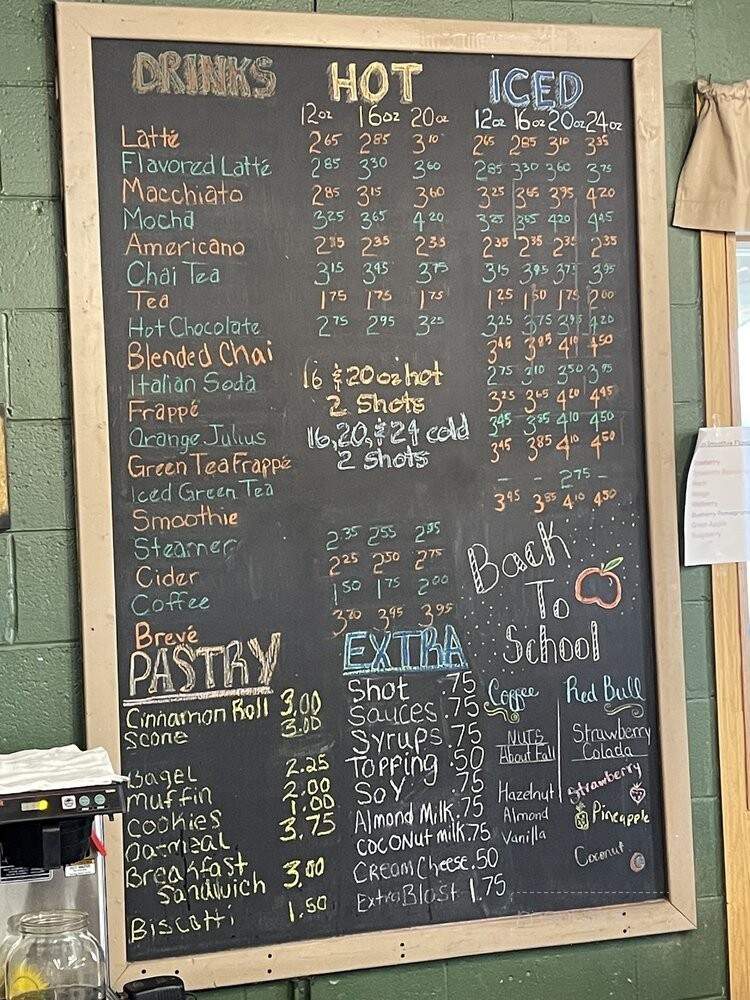 DRINKS HOT ICED
12oz 16oz 20oz 12oz 16oz 20oz 24oz
Latté 2.65 2.85 3.10 2.65 2.85 3.10 3.35
Flavored Latté 2.85 3.30 3.60 2.85 3.30 3.60 3.75
Macchiato 2.85 3.15 3.60 3.25 3.65 3.95 4.20
Mocha 3.25 3.65 4.20 3.25 3.65 4.20 4.45
Americano 2.15 2.35 2.35 2.35 2.35 2.35 2.35
Chai Tea 3.15 3.45 3.75 3.15 3.45 3.75 3.95
Tea 1.75 1.75 1.75 1.25 1.50 1.75 2.00
Hot Chocolate 2.75 2.95 3.25 3.25 3.75 3.95 4.20
Blended Chai 3.45 3.85 4.10 4.50
Italian Soda 2.75 3.10 3.50 3.95
Frappé 3.25 3.65 4.20 4.45
Orange Julius 3.45 3.85 4.10 4.50
Green Tea Frappé 3.45 3.85 4.10 4.50
Iced Green Tea - - 2.75 -
Smoothie 3.45 3.85 4.10 4.50
16 & 20 oz hot
2 Shots
16, 20, & 24 cold
2 shots
Steamer 2.35 2.55 2.95
Cider 2.25 2.50 2.75
Coffee 1.50 1.75 2.00
Brevé 3.20 3.95 3.95
Back
To
School
PASTRY
Cinnamon Roll 3.00
Scone 3.00
Bagel 2.25
muffin 2.00
cookies 1.00
Oatmeal 3.75
Breakfast
Sandwich 3.00
Biscotti 1.50
EXTRA
Shot .75
Sauces .75
Syrups .75
Topping .50
Soy .75
Almond Milk .75
coconut milk .75
Cream Cheese .50
Extra Blast 1.75
Coffee
NUTS
About Fall
Hazelnut
Almond
Vanilla
Red Bull
Strawberry
Colada
Strawberry
Pineapple
Coconut